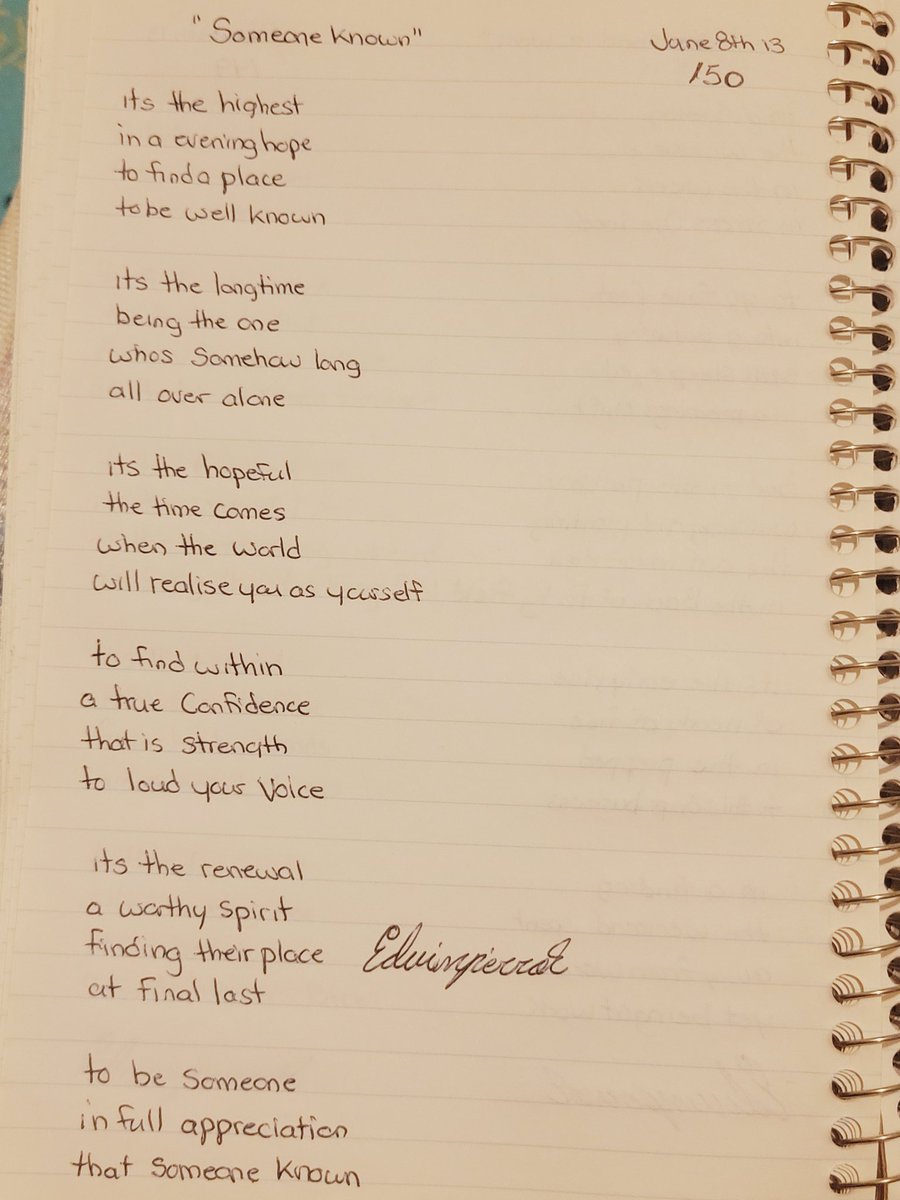 "Someone Known"
June 8th 13
150
its the highest
in a evening hope
to find a place
to be well known
its the longtime
being the one
whos Somehow long
all over alone
its the hopeful
the time comes
when the world
will realise you as yourself
to find within
a true Confidence
that is strength
to loud your Voice
its the renewal
a worthy Spirit
finding their place
at final last
Edwinpierrot
to be Someone
in full appreciation
that Someone Known